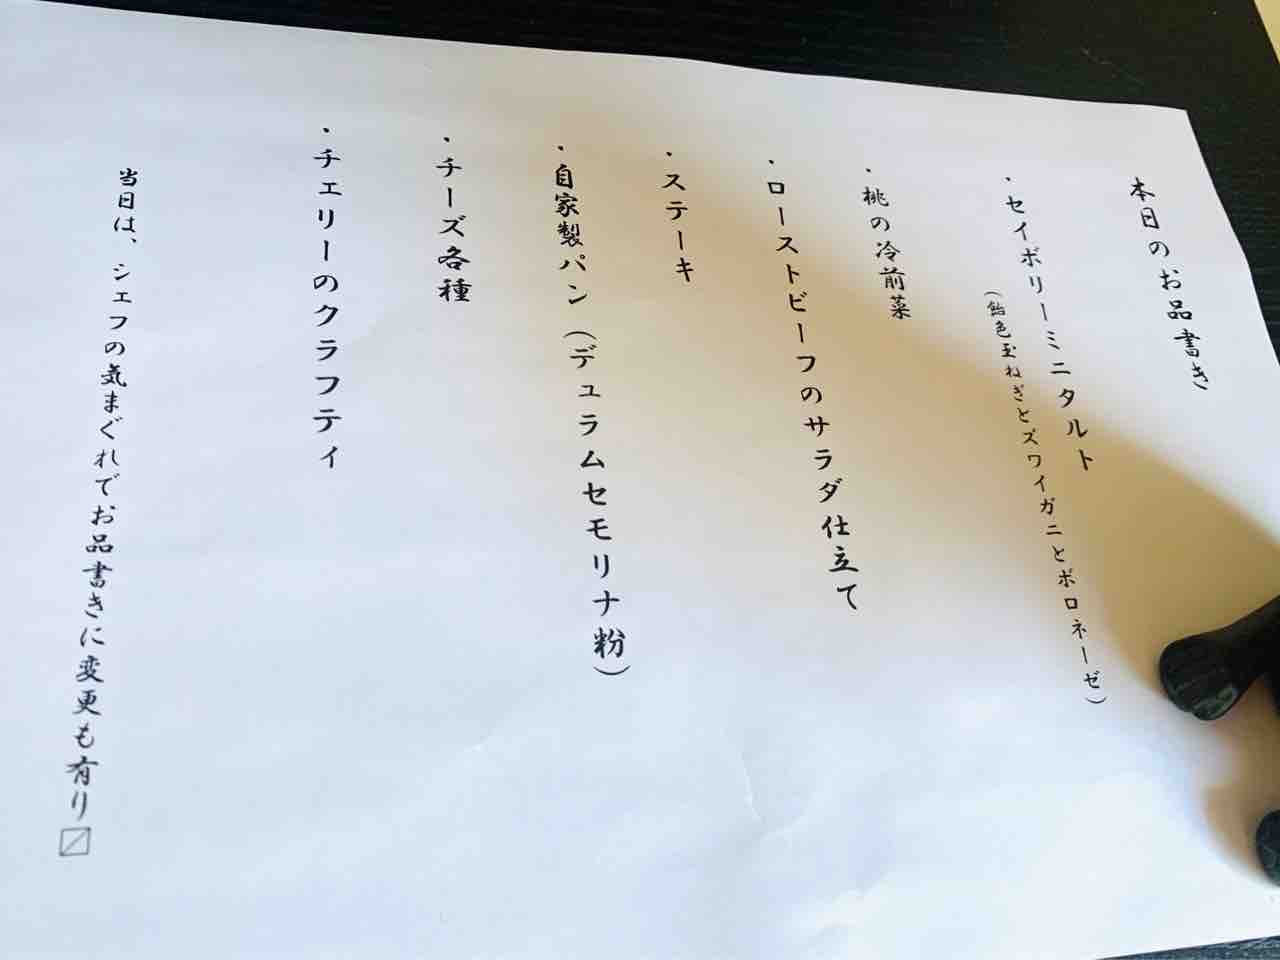 本日のお品書き
・セイボリーミニタルト
（飴色玉ねぎとズワイガニとボロネーゼ）
・桃の冷前菜
・ローストビーフのサラダ仕立て
・ステーキ
・自家製パン（デュラムセモリナ粉）
・チーズ各種
・チェリーのクラフティ
当日は、シェフの気まぐれでお品書きに変更も有り〼